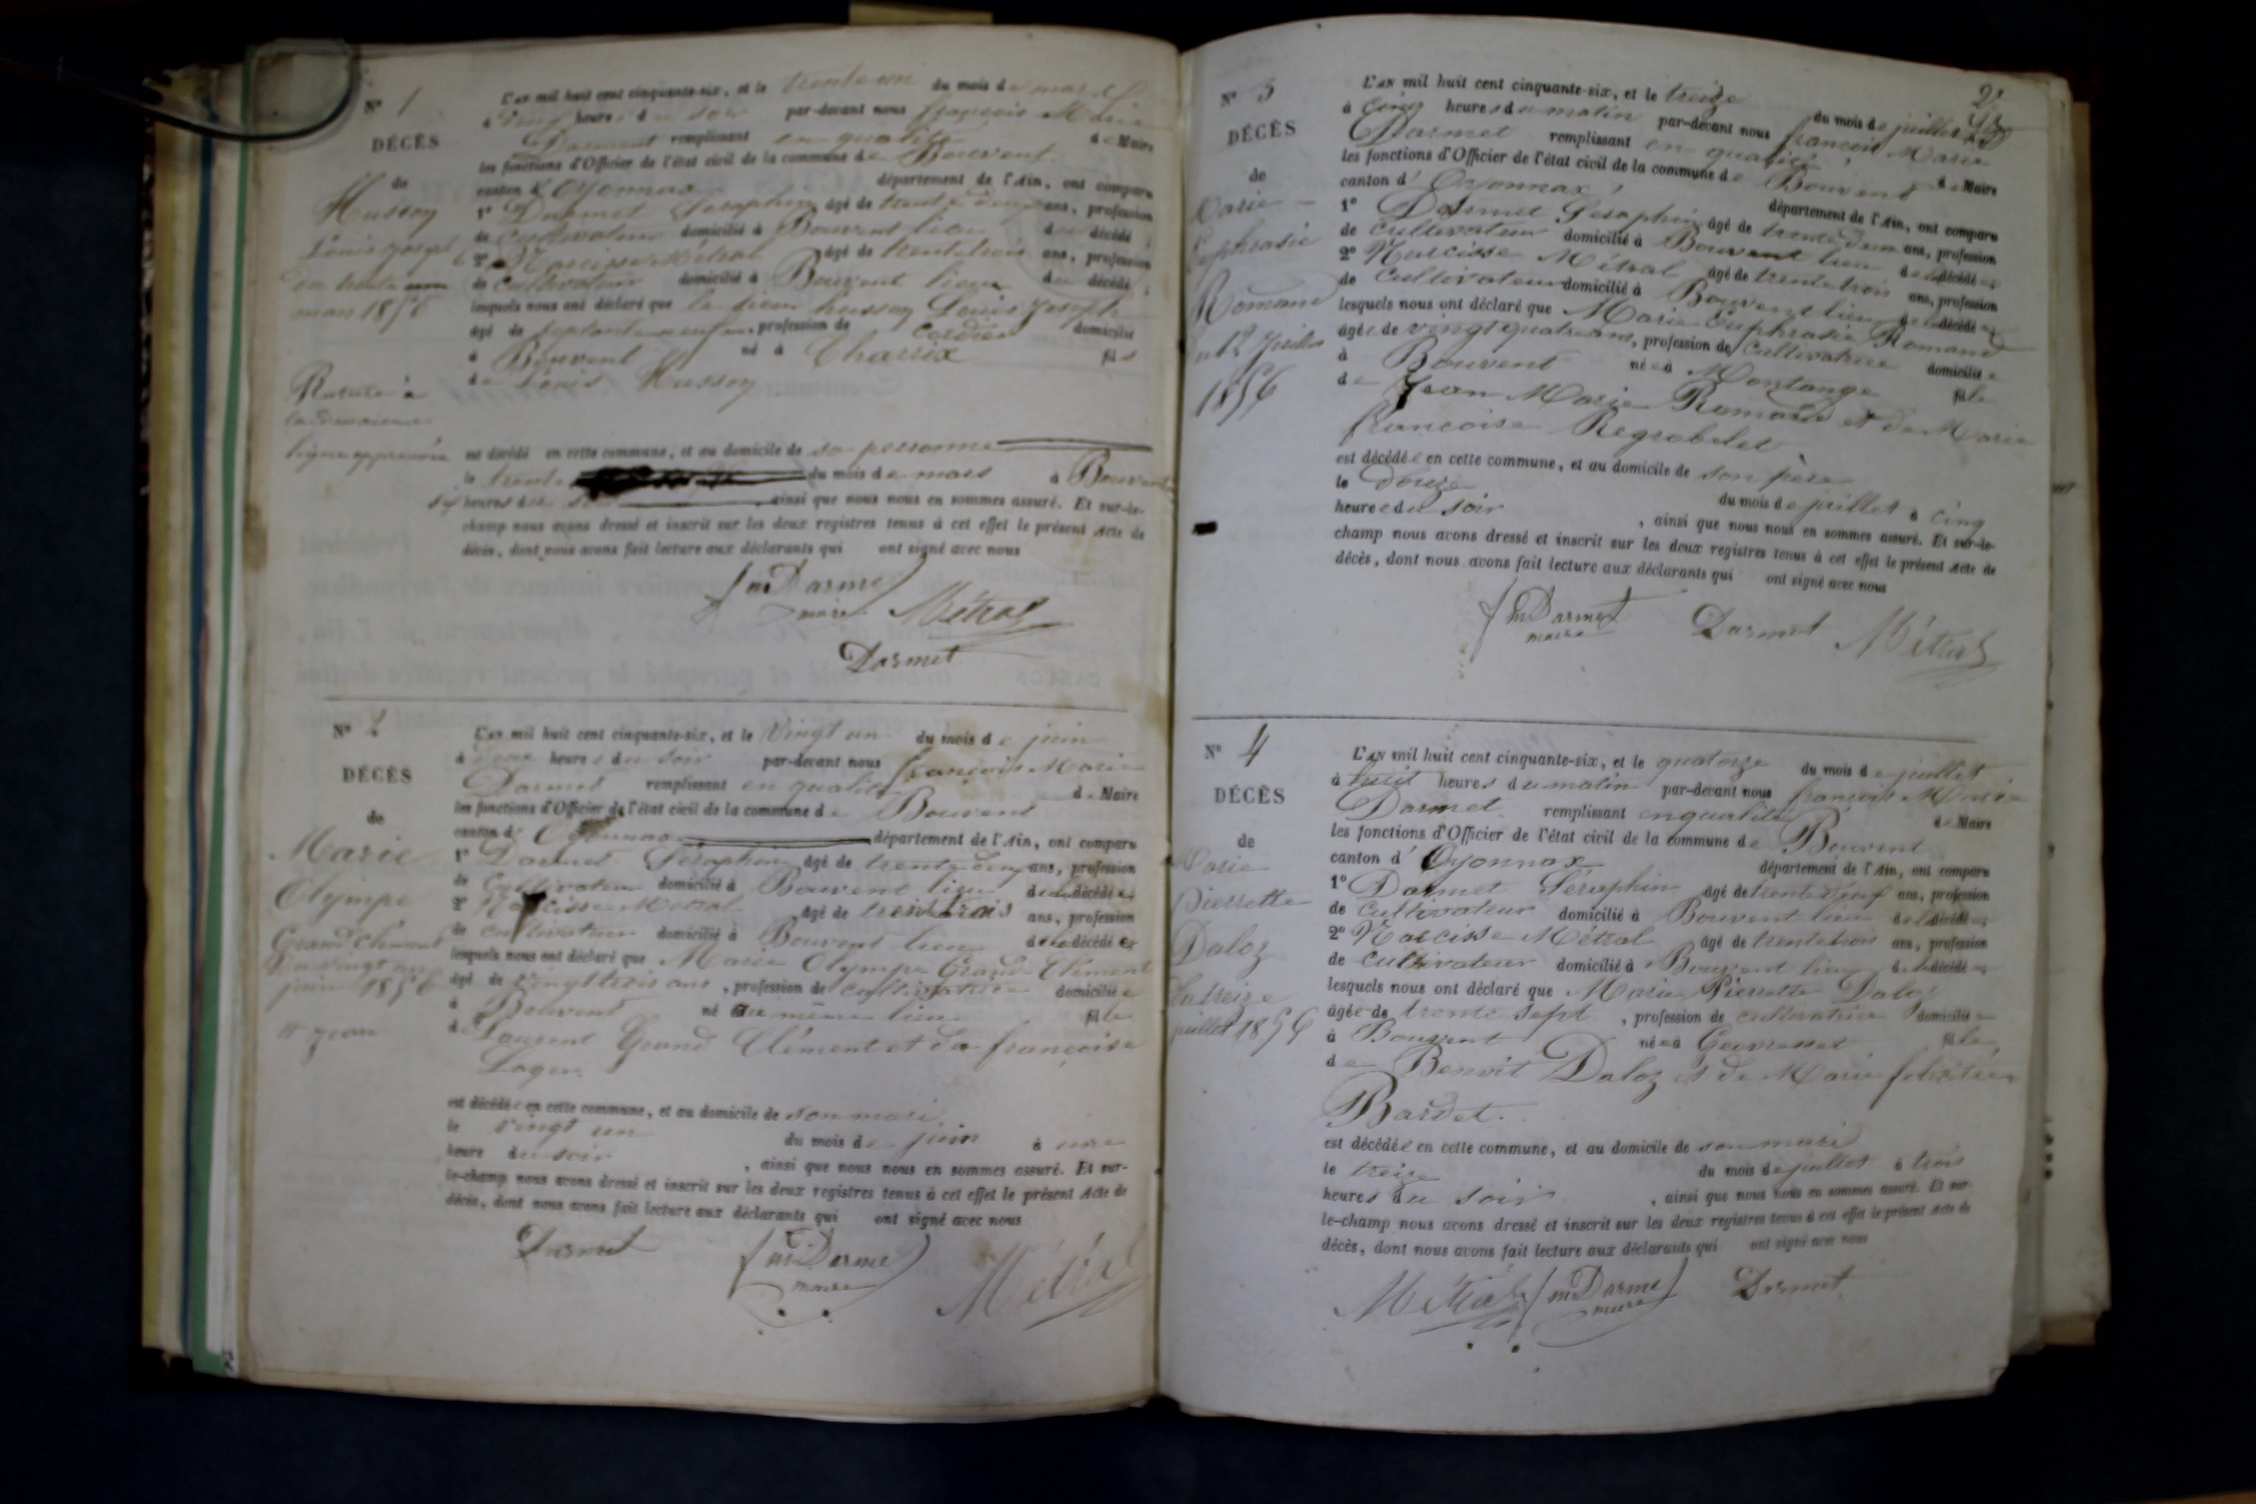 N° 1
DÉCÈS
de
Husson
Louis Joseph
du trente un
mars 1856
Rature à
la
ligne approuvée
L'AN mil huit cent cinquante-six, et le trente un du mois de mars
à cinq heures du soir par-devant nous françois Marie
Darmet remplissant en qualité de Maire
les fonctions d'Officier de l'état civil de la commune de Bouvent
canton d'Oyonnax département de l'Ain, ont comparu
1° Darmet Seraphin âgé de trente deux ans, profession
de cultivateur domicilié à Bouvent lieu du décédé ;
2° Narcisse Métral âgé de trente trois ans, profession
de cultivateur domicilié à Bouvent lieu du décédé ;
lesquels nous ont déclaré que le sieur husson Louis Joseph
âgé de septante neuf ans, profession de cordier domicilié
à Bouvent né à Charix fils
de Louis Husson
est décédé en cette commune, et au domicile de sa personne
le trente du mois de mars à Bouvent
heures du soir, ainsi que nous nous en sommes assuré. Et sur-le-
champ nous avons dressé et inscrit sur les deux registres tenus à cet effet le présent Acte de
décès, dont nous avons fait lecture aux déclarants qui ont signé avec nous
fm Darmet
maire Métral
Darmet
N° 2
DÉCÈS
de
Marie
Olympe
Grand Clément
du vingt un
juin 1856
L'AN mil huit cent cinquante-six, et le vingt un du mois de juin
à heures du soir par-devant nous françois Marie
Darmet remplissant en qualité de Maire
les fonctions d'Officier de l'état civil de la commune de Bouvent
canton d'Oyonnax département de l'Ain, ont comparu
1° Darmet Séraphin âgé de trente deux ans, profession
de cultivateur domicilié à Bouvent lieu de la décédée
2° Narcisse Métral âgé de trente trois ans, profession
de cultivateur domicilié à Bouvent lieu de la décédée
lesquels nous ont déclaré que Marie Olympe Grand Clément
âgé de vingt trois ans, profession de cultivatrice domiciliée
à Bouvent né au même lieu fille
de Laurent Grand Clément et de françoise
est décédée en cette commune, et au domicile de son mari
le vingt un du mois de juin à une
heure du soir, ainsi que nous nous en sommes assuré. Et sur-
le-champ nous avons dressé et inscrit sur les deux registres tenus à cet effet le présent Acte de
décès, dont nous avons fait lecture aux déclarants qui ont signé avec nous
Darmet fm Darmet
maire Métral
2
N° 3
DÉCÈS
de
Marie
Euphrasie
Romand
du 12 juillet
1856
L'AN mil huit cent cinquante-six, et le treize du mois de juillet
à cinq heures du matin par-devant nous françois Marie
Darmet remplissant en qualité de Maire
les fonctions d'Officier de l'état civil de la commune de Bouvent
canton d'Oyonnax département de l'Ain, ont comparu
1° Darmet Seraphin âgé de trente deux ans, profession
de cultivateur domicilié à Bouvent lieu de la décédée
2° Narcisse Métral âgé de trente trois ans, profession
de cultivateur domicilié à Bouvent lieu de la décédée
lesquels nous ont déclaré que Marie Euphrasie Romand
âgée de vingt quatre ans, profession de cultivatrice domiciliée
à Bouvent née à Montange fille
de Jean Marie Romand et de Marie
françoise Regrobelet
est décédée en cette commune, et au domicile de son père
le douze du mois de juillet à cinq
heures du soir, ainsi que nous nous en sommes assuré. Et sur-le-
champ nous avons dressé et inscrit sur les deux registres tenus à cet effet le présent Acte de
décès, dont nous avons fait lecture aux déclarants qui ont signé avec nous
fm Darmet
maire Darmet Métral
N° 4
DÉCÈS
de
Marie
Pierrette
Daloz
du treize
juillet 1856
L'AN mil huit cent cinquante-six, et le quatorze du mois de juillet
à huit heures du matin par-devant nous françois Marie
Darmet remplissant en qualité de Maire
les fonctions d'Officier de l'état civil de la commune de Bouvent
canton d'Oyonnax département de l'Ain, ont comparu
1° Darmet Séraphin âgé de trente ans, profession
de cultivateur domicilié à Bouvent lieu de la décédée
2° Narcisse Métral âgé de trente trois ans, profession
de cultivateur domicilié à Bouvent lieu de la décédée
lesquels nous ont déclaré que Marie Pierrette Daloz
âgée de trente sept, profession de cultivatrice domiciliée
à Bouvent née à fille
de Benoit Daloz et de Marie
Bardet.
est décédée en cette commune, et au domicile de son mari
le treize du mois de juillet à trois
heures du soir, ainsi que nous nous en sommes assuré. Et sur-
le-champ nous avons dressé et inscrit sur les deux registres tenus à cet effet le présent Acte de
décès, dont nous avons fait lecture aux déclarants qui ont signé avec nous
Métral fm Darmet
maire Darmet